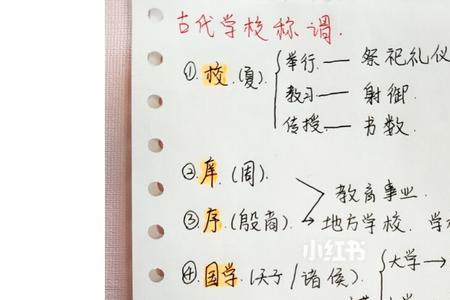 古代学校称谓.
①校(夏) 举行—祭祀礼仪
教习—射御
传授—书数
②.庠(周).
教育事业.
③序(殷商) → 地方学校. 学
小红书
④国学(天子/诸侯). 大学→